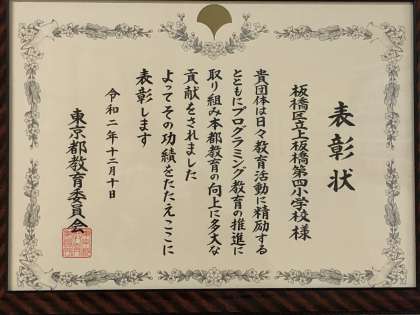 表彰状
板橋区立上板橋第四小学校様
貴団体は日々教育活動に精励する
とともにプログラミング教育の推進に
取り組み本都教育の向上に多大な
貢献をされました
よってその功績をたたえここに
表彰します
令和二年十二月十日
東京都教育委員会